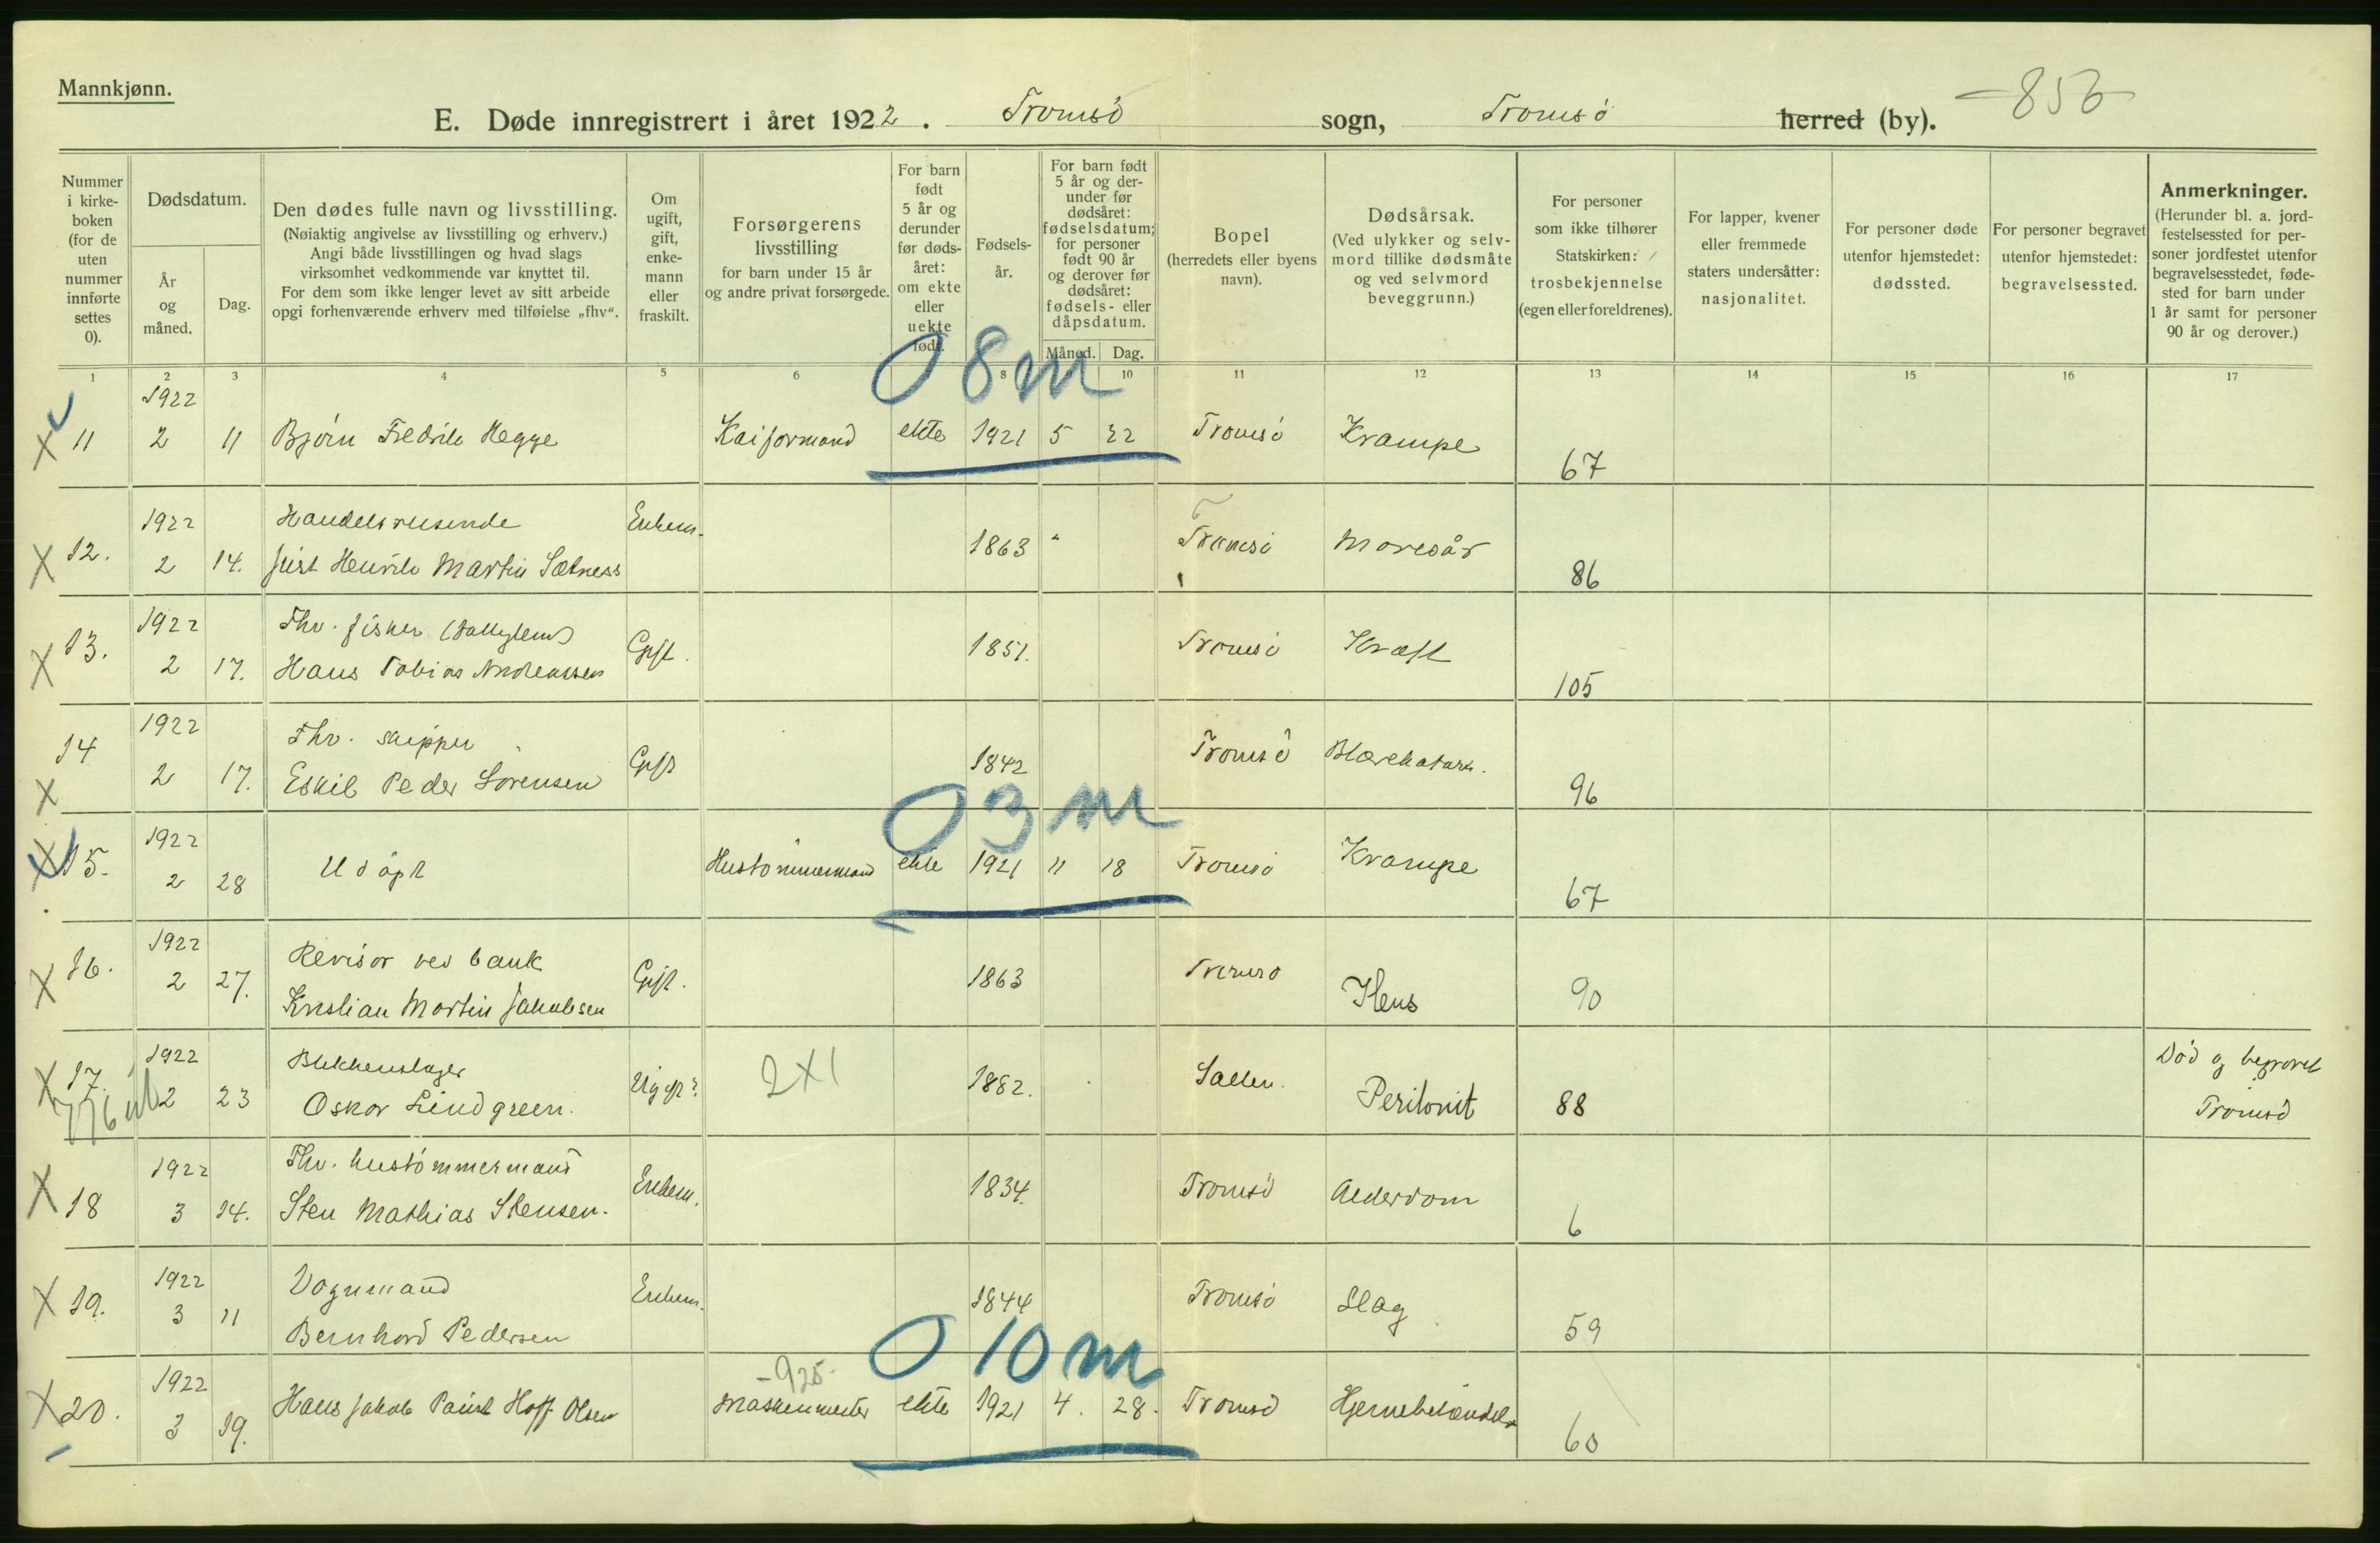 Mannkjønn.
E. Døde innregistrert i året 1922. Tromsö sogn, Tromsö herred (by). -856
Nummer i kirkeboken (for de uten nummer innførte settes 0).
Dødsdatum.
År og måned.
Dag.
Den dødes fulle navn og livsstilling.
(Nøiaktig angivelse av livsstilling og erhverv.)
Angi både livsstillingen og hvad slags
virksomhet vedkommende var knyttet til.
For dem som ikke lenger levet av sitt arbeide
opgi forhenværende erhverv med tilføielse „fhv“.
Om ugift, gift, enkemann eller fraskilt.
Forsørgerens livsstilling
for barn under 15 år
og andre privat forsørgede.
For barn født 5 år og derunder før dødsåret: om ekte eller uekte født.
Fødselsår.
For barn født 5 år og derunder før dødsåret: fødselsdatum; for personer født 90 år og derover før dødsåret: fødsels- eller dåpsdatum.
Måned. Dag.
Bopel
(herredets eller byens navn).
Dødsårsak.
(Ved ulykker og selvmord tillike dødsmåte og ved selvmord beveggrunn.)
For personer som ikke tilhører Statskirken: trosbekjennelse (egen eller foreldrenes).
For lapper, kvener eller fremmede staters undersåtter: nasjonalitet.
For personer døde utenfor hjemstedet: dødssted.
For personer begravet utenfor hjemstedet: begravelsessted.
Anmerkninger.
(Herunder bl. a. jordfestelsessted for personer jordfestet utenfor begravelsesstedet, fødested for barn under 1 år samt for personer 90 år og derover.)
1 2 3 4 5 6 8 10 11 12 13 14 15 16 17
0 8 m
1922
X 11 2 11 Björn Fredrik Hegge Kaiformand ekte 1921 5 22 Tromsö Krampe 67
1922 Handelsreisende Enkem.
X 12. 2 14. Just Henrik Martin Sætness 1863 " Tromsö Maresår 86
1922 Fhv. fisker
X 13. 2 17. Hans Tobias Andreassen Gift. 1851. Tromsö Kræft 105
1922 Fhv. skipper
X 14 2 17. Eskil Peder Sorensen Gift 1842 Tromsö Blærekatarr. 96
0 3 m
1922
X 15. 2 28 Udöpt Hustömmermand ekte 1921 11 18 Tromsö Krampe 67
1922 Revisor ved bank
X 16. 2 27. Kristian Martin Jakobsen Gift. 1863 Tromsö 90
1922 Blikkenslager
X 17. 2 23 Oskar Lindgreen. Ugift? 2X1 1882. Peritonit 88 Död og begravet Tromsö
776
1922 Fhv. hustömmermand
X 18 3 14. Sten Mathias Stensen. Enkem. 1834. Tromsö Alderdom 6
1922 Vognmand
X 19. 3 11 Bernhard Pedersen Enkem. 1844 Tromsö Slag 59
0 10 m
-925-
1922
X 20. 3 19. Hans Jakob Hoff Olsen Maskinmester ekte 1921 4. 28. Tromsö Hjernebetændelse 60